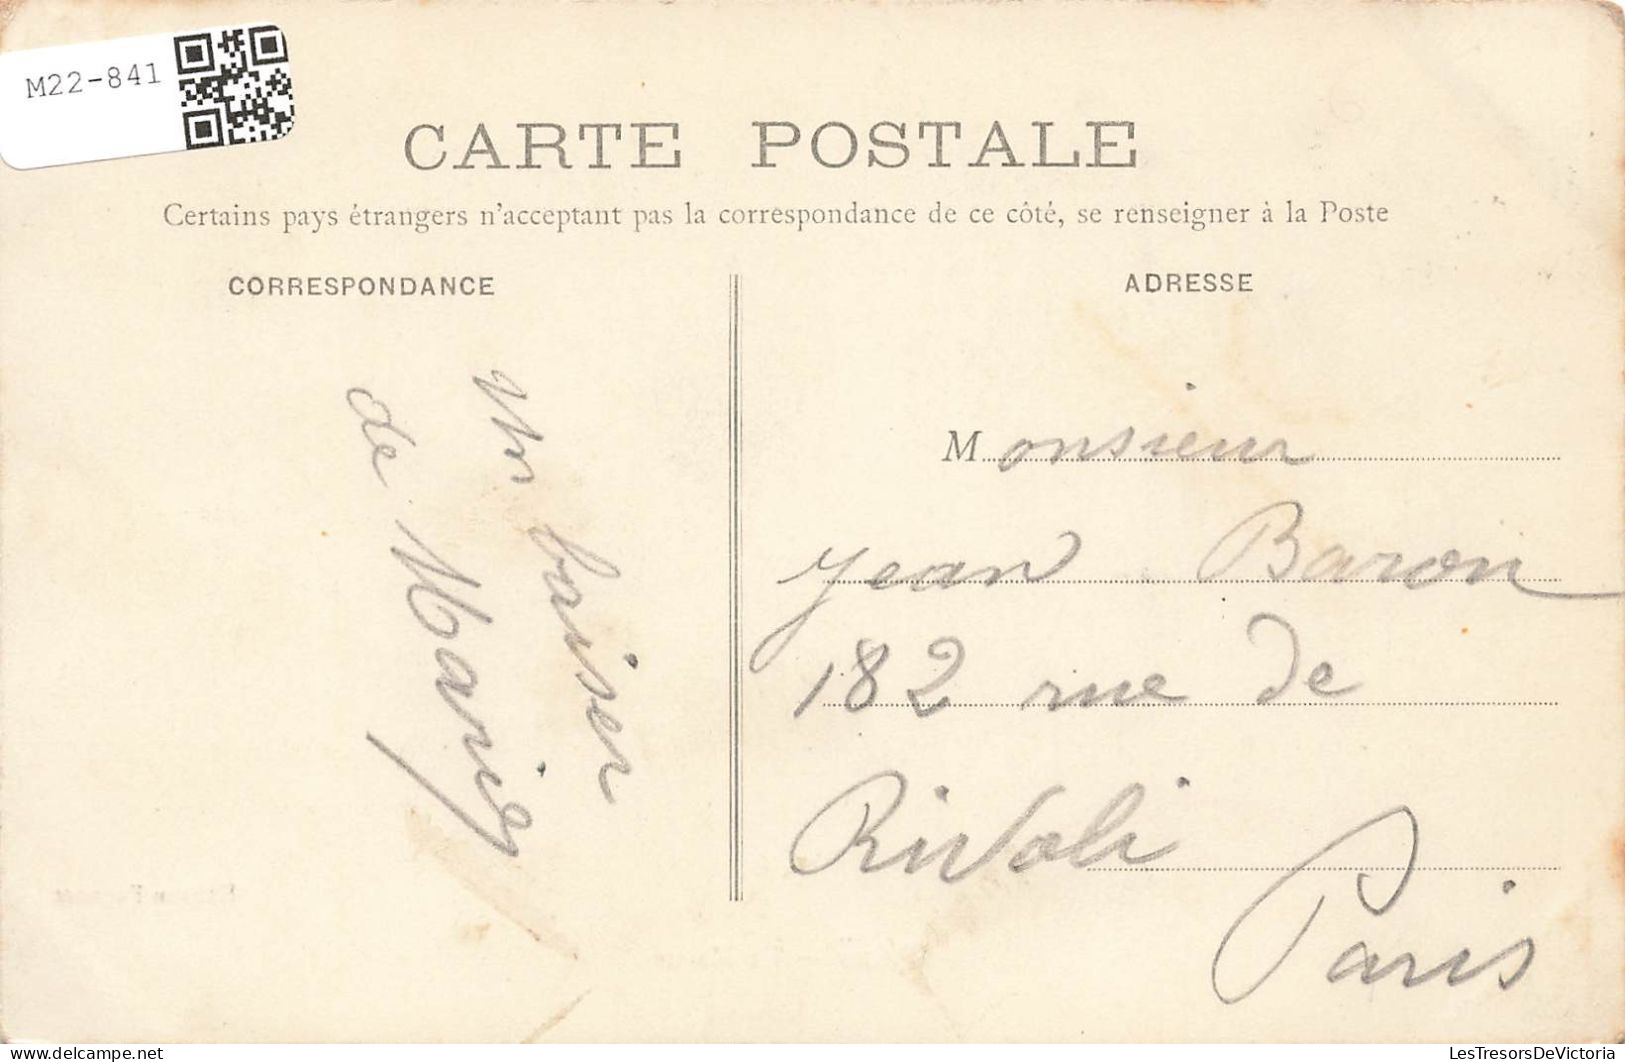 M22-841
CARTE POSTALE
Certains pays étrangers n'acceptant pas la correspondance de ce côté, se renseigner à la Poste
CORRESPONDANCE
baiser
de Marie
ADRESSE
Monsieur
Jean Baron
182 rue de
Rivoli
Paris
delcampe.net
LesTresorsDeVictoria